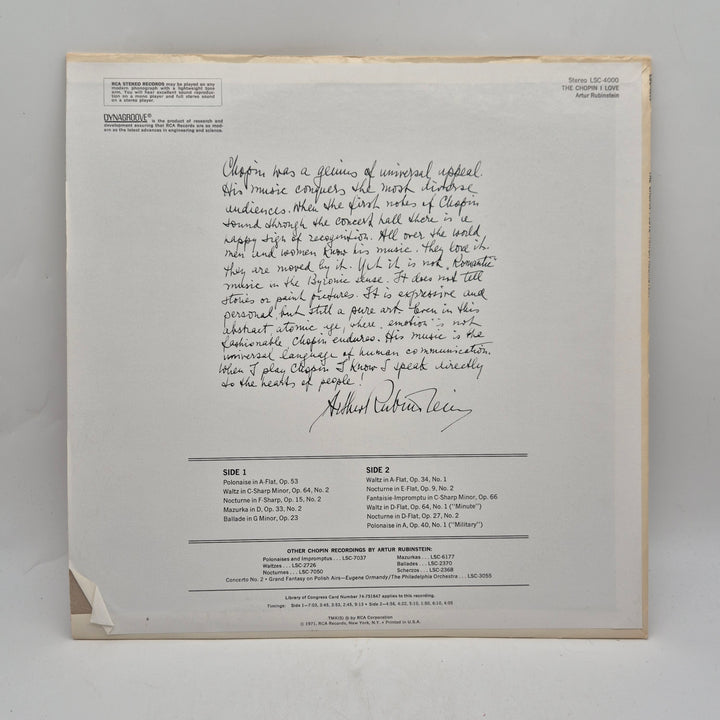 RCA STEREO RECORDS may be played on any
modern phonograph with a lightweight tone
arm. You will hear excellent sound reproduc-
tion on a mono player and full stereo sound
on a stereo player.
DYNAGROOVE® is the product of research and
development assuring that RCA Records are as mod-
ern as the latest advances in engineering and science.
Stereo LSC-4000
THE CHOPIN I LOVE
Artur Rubinstein
Chopin was a genius of universal appeal.
His music conquers the most diverse
audiences. When the first notes of Chopin
sound through the concert hall there is a
happy sign of recognition. All over the world
men and women know his music. They love it.
They are moved by it. Yet it is not "Romantic"
music in the Byronic sense. It does not tell
stories or paint pictures. It is expressive and
personal, but still a pure art. Even in this
abstract atomic age, where emotion is not
fashionable Chopin endures. His music is the
universal language of human communication.
When I play Chopin I know I speak directly
to the hearts of people!
Arthur Rubinstein
SIDE 1
Polonaise in A-Flat, Op. 53
Waltz in C-Sharp Minor, Op. 64, No. 2
Nocturne in F-Sharp, Op. 15, No. 2
Mazurka in D, Op. 33, No. 2
Ballade in G Minor, Op. 23
SIDE 2
Waltz in A-Flat, Op. 34, No. 1
Nocturne in E-Flat, Op. 9, No. 2
Fantaisie-Impromptu in C-Sharp Minor, Op. 66
Waltz in D-Flat, Op. 64, No. 1 ("Minute")
Nocturne in D-Flat, Op. 27, No. 2
Polonaise in A, Op. 40, No. 1 ("Military")
OTHER CHOPIN RECORDINGS BY ARTUR RUBINSTEIN:
Polonaises and Impromptus . . . LSC-7037
Waltzes . . . LSC-2726
Nocturnes . . . LSC-7050
Mazurkas . . . LSC-6177
Ballades . . . LSC-2370
Scherzos . . . LSC-2368
Concerto No. 2 • Grand Fantasy on Polish Airs—Eugene Ormandy/The Philadelphia Orchestra . . . LSC-3055
Library of Congress Card Number 74-751847 applies to this recording.
Timings: Side 1—7:03, 3:45, 3:53, 2:45, 9:13 • Side 2—4:56, 4:02, 5:10, 1:50, 6:10, 4:05
TMK(S) ® by RCA Corporation
© 1971, RCA Records, New York, N.Y. • Printed in U.S.A.